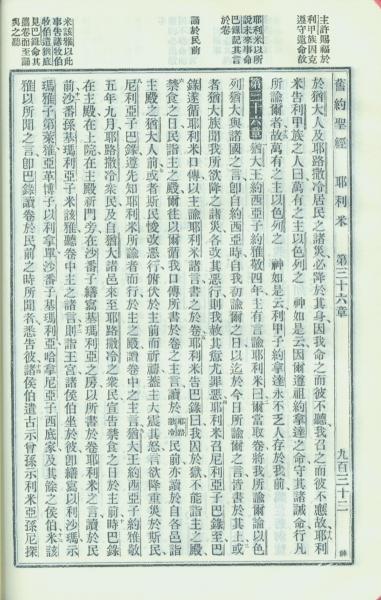 舊約聖經 耶利米 第三十六章 九百三十二
主許賜福於
利甲族因克
遵守遺命故
於猶大人及耶路撒冷居民之諸災必降於其身因我命之而彼不聽我召之而彼不應故耶利
米告利甲族之人曰萬有之主以色列之 神如是云因爾遵祖約拿達之命守其諸誡命行凡
所諭爾者故萬有之主以色列之 神如是云利甲子約拿達永不乏人存於我前
耶利米以所
說未來事命
巴錄記其言
於卷
第三十六章 猶大王約西亞子約雅敬四年主有言諭耶利米曰爾當取卷將我所諭論以色
列猶大與諸國之言卽自約西亞時自我初諭爾之日以迄於今日所諭爾之言皆書於其上或
者猶大族聞我所欲降之諸災各改其惡行則我赦其愆尤罪惡耶利米召尼利亞子巴錄至巴
誦於民前
錄遂循耶利米口傳以主諭耶利米諸言書之於卷耶利米告巴錄曰我囚於獄不能詣主之殿
禁食之日民詣主之殿爾往以爾循我口傳所書於卷之主言讀於耶路撒冷民前亦讀於自各邑詣
主殿之猶大人前或者斯民悛改惡行俯伏於主前而祈禱蓋主大震其怒言欲降重災於斯民
尼利亞子巴錄遵先知耶利米所諭者而行於主之殿讀卷中之主言猶大王約西亞子約雅敬
五年九月耶路撒冷衆民及自猶大諸邑來至耶路撒冷之衆民宣告禁食之日於主前時巴錄
在主殿在上院在主殿新門旁在沙番子繕寫基瑪利亞之房以所書於卷耶利米之言讀於民
米該雅以此
事告諸牧伯
牧伯遣猶底
見巴錄命其
攜卷而至誦
與之聽
前沙番孫基瑪利亞子米該雅聽卷中主之諸言則詣王宮諸侯伯坐於彼卽繕寫以利沙瑪示
瑪雅子第萊雅亞革博子以利拿單沙番子基瑪利亞哈拿尼亞子西底家及其餘之侯伯米該
雅以所聞之言卽巴錄讀卷於民前之時所聞者悉告彼諸侯伯遣古示曾孫示利米亞孫尼探